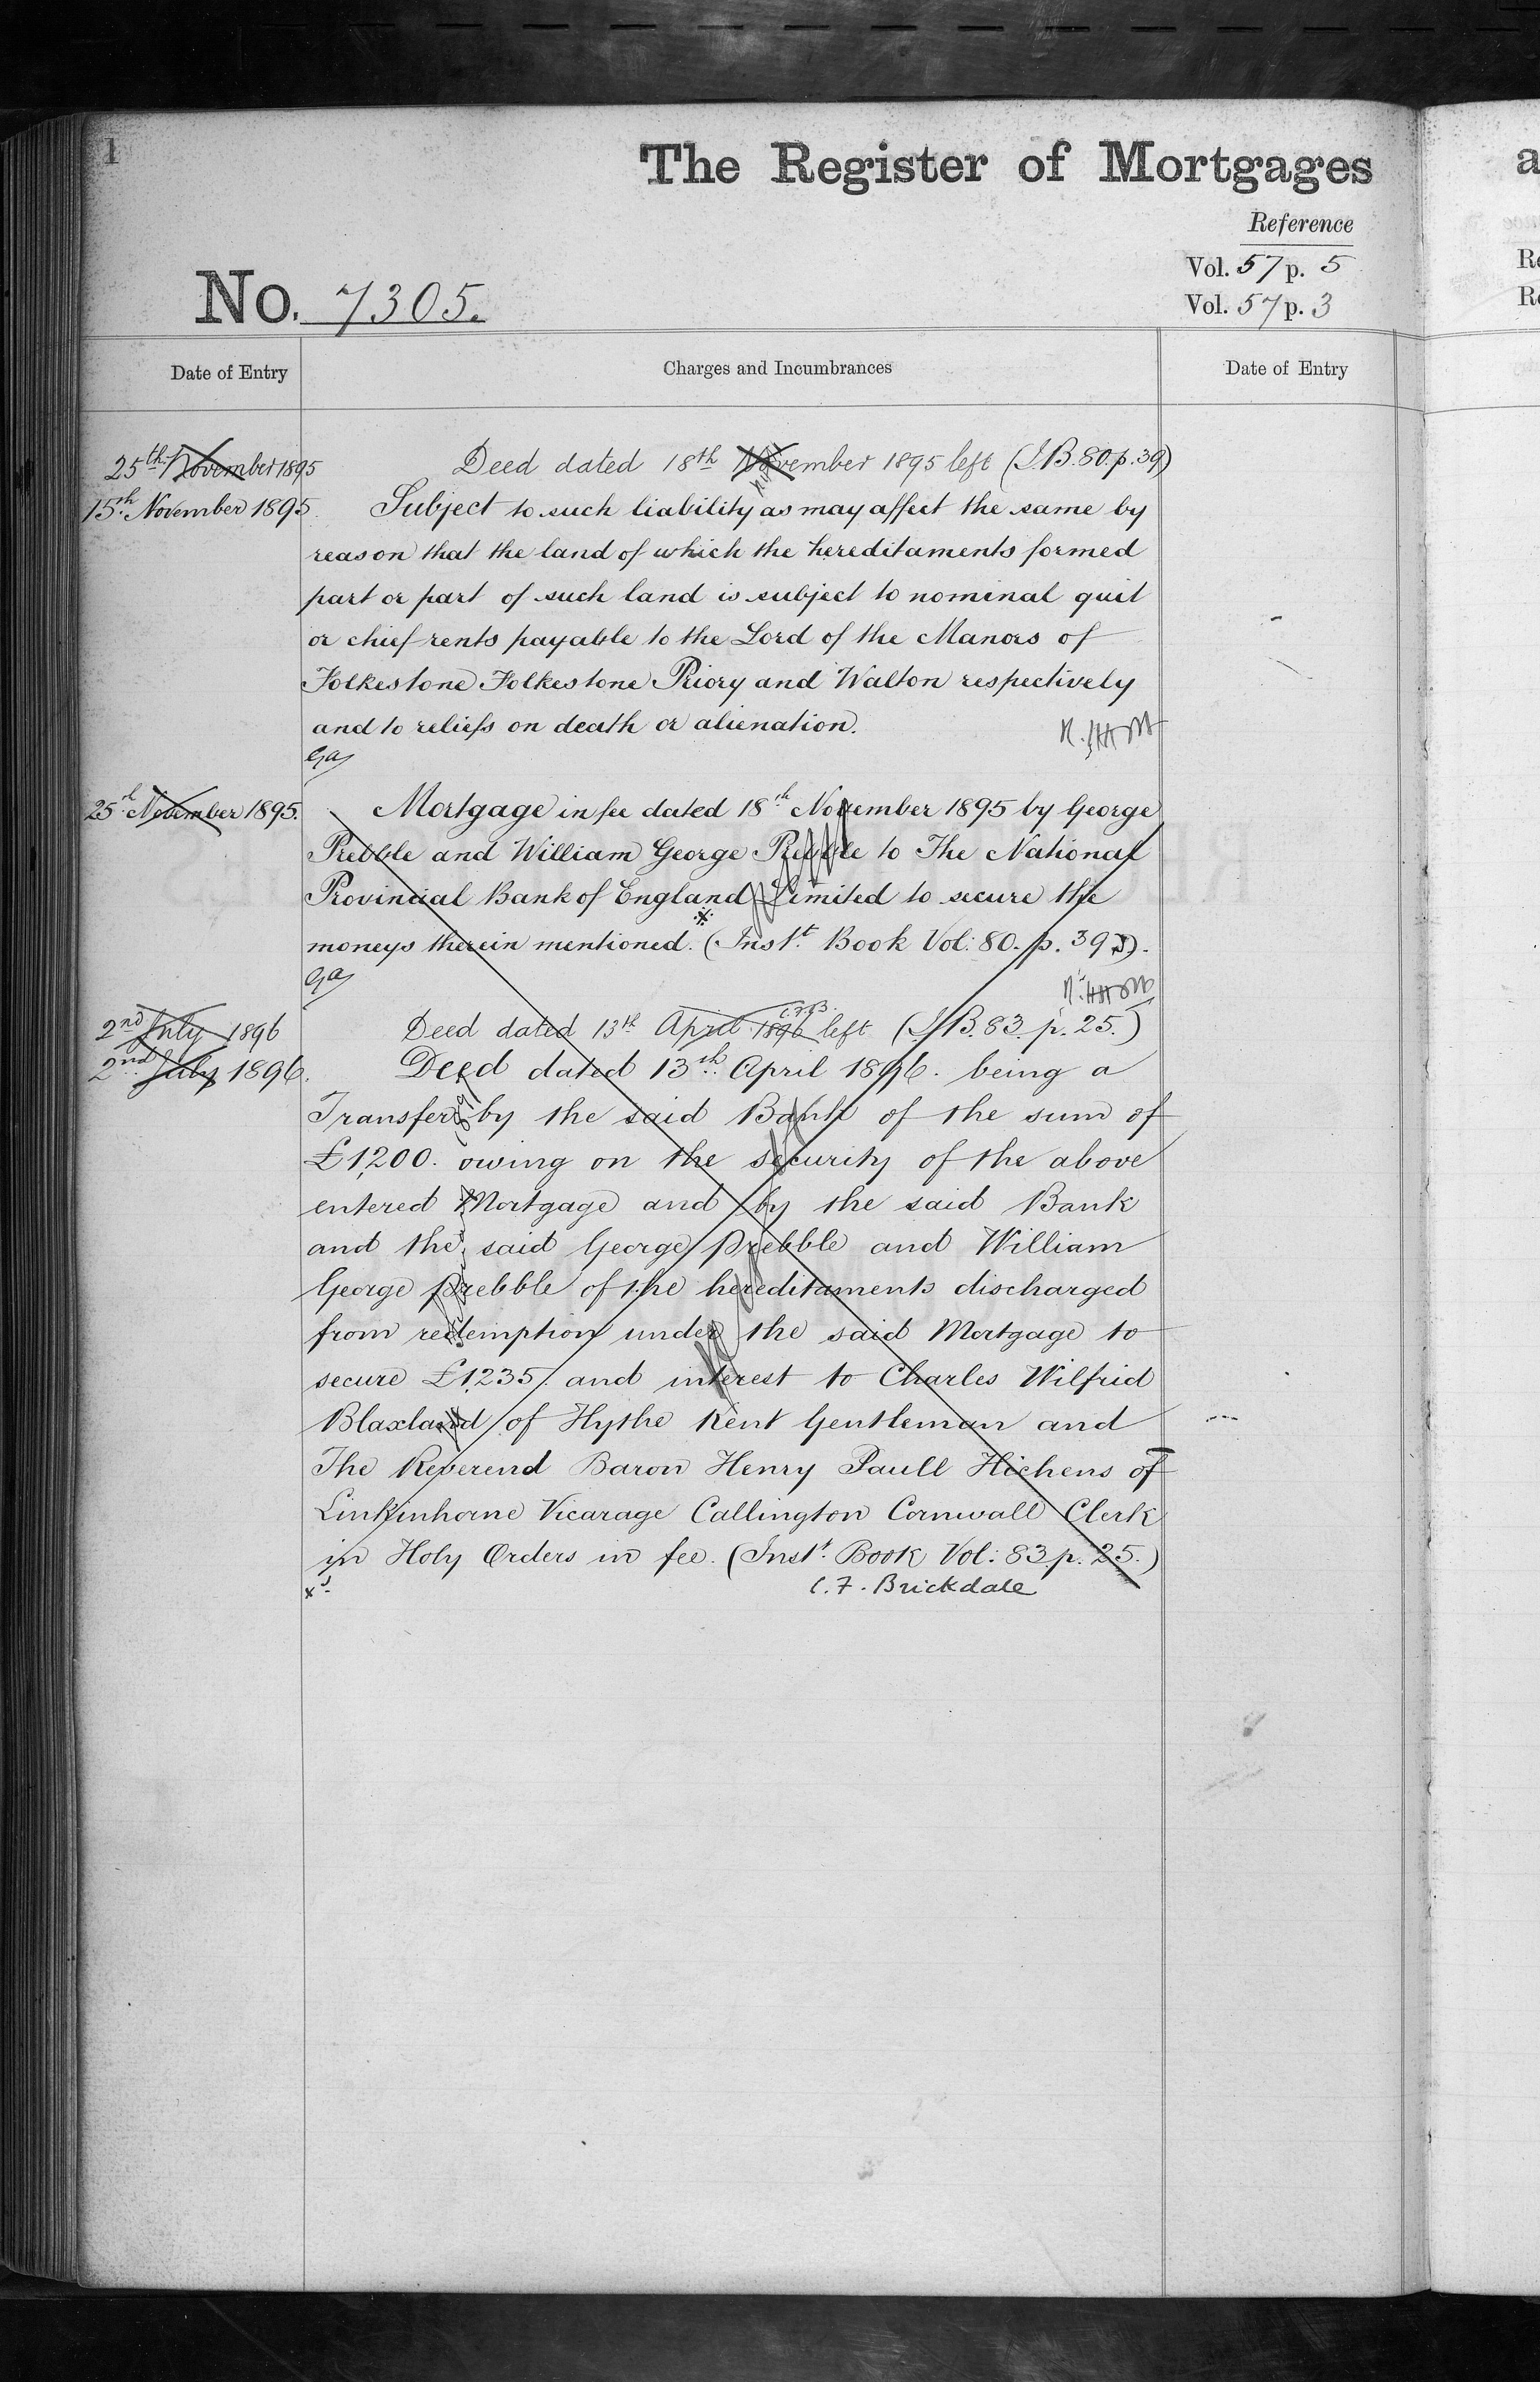 1
The Register of Mortgages
Reference
Vol. 57 p. 5
Vol. 57 p. 3
No. 7305.
Date of Entry
Charges and Incumbrances
Date of Entry
25th November 1895
Deed dated 18th November 1895 left (I.B. 80. p. 39)
15th November 1895
Subject to such liability as may affect the same by
reason that the land of which the hereditaments formed
part or part of such land is subject to nominal quit
or chief rents payable to the Lord of the Manors of
Folkestone Folkestone Priory and Walton respectively
and to reliefs on death or alienation.
25th November 1895.
Mortgage in fee dated 18th November 1895 by George
Prebble and William George Prebble to The National
Provincial Bank of England Limited to secure the
moneys therein mentioned. (Inst. Book Vol: 80. p. 39).
2nd July 1896
Deed dated 13th April 1896 left (I.B. 83. p. 25.)
C.F.B.
2nd July 1896.
Deed dated 13th April 1896. being a
Transfer by the said Bank of the sum of
£1,200. owing on the security of the above
entered Mortgage and by the said Bank
and the said George Prebble and William
George Prebble of the hereditaments discharged
from redemption under the said Mortgage to
secure £1,235. and interest to Charles Wilfrid
Blaxland of Hythe Kent Gentleman and
The Reverend Baron Henry Paull Hichens of
Linkinhorne Vicarage Callington Cornwall Clerk
in Holy Orders in fee. (Inst. Book Vol: 83. p. 25.)
C. F. Brickdale
a
Re
R